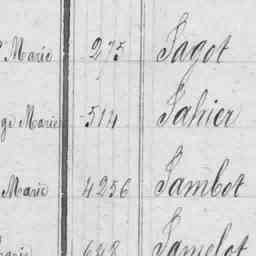 Marie 275 Jagot
ge Marie 514 Jahier
Marie 4256 Jambet
648 Jamelot